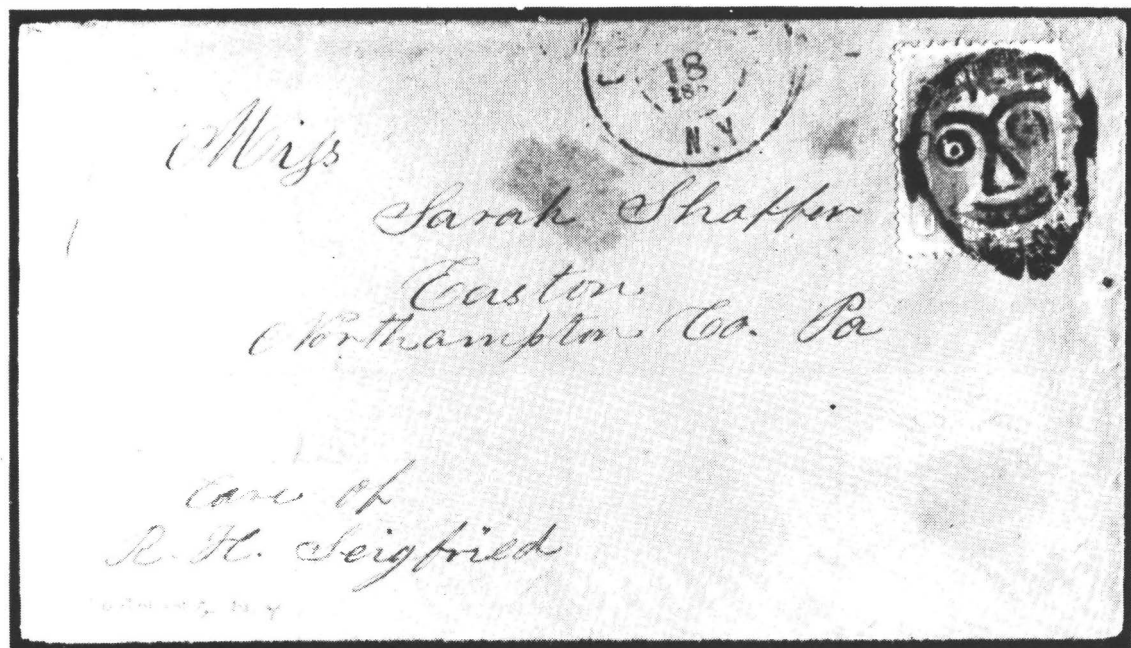 18
188
N.Y
Miss
Sarah Shaffer
Easton
Northampton Co. Pa
Care of
R. H. Seigfried
N Y